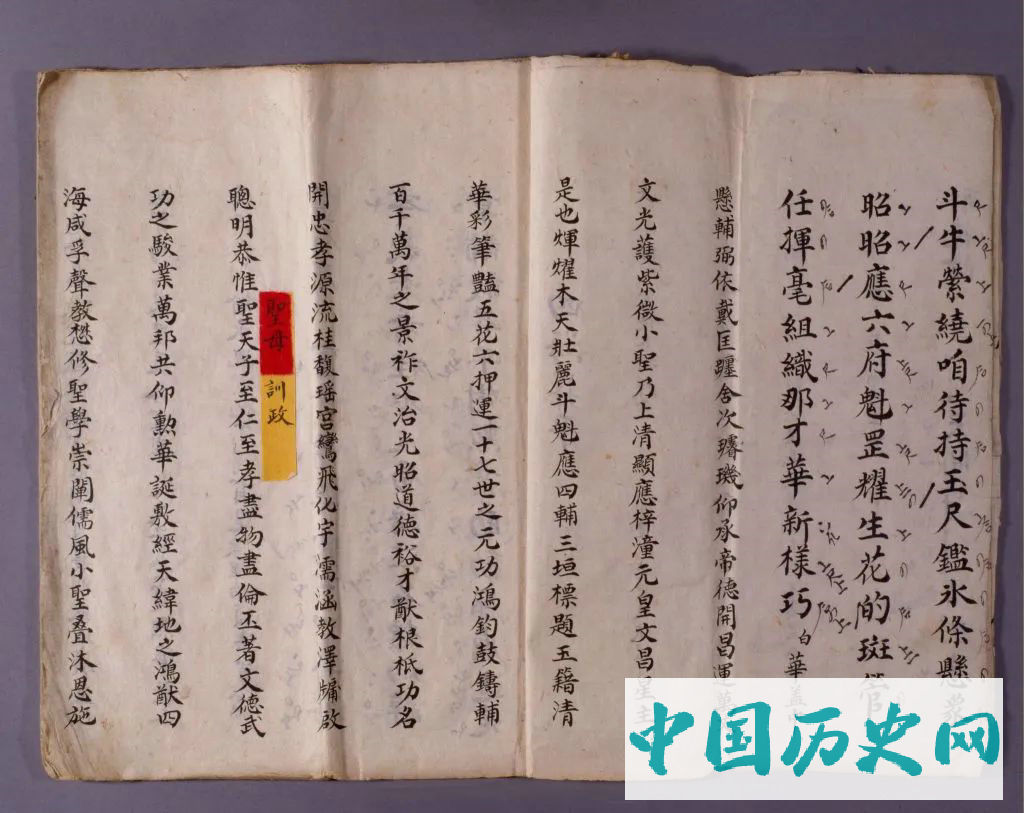 斗牛縈繞咱待持玉尺鑑氷條懸
昭昭應六府魁罡耀生花的斑管
任揮毫組織那才華新樣巧白華蓋
懸輔弼依戴匡躔舍次璿璣仰承帝德開昌運
文光護紫微小聖乃上清顯應梓潼元皇文昌星主
是也煇耀木天壯麗斗魁應四輔三垣標題五籍清
華彩筆豔五花六押運一十七世之元功鴻鈞鼓鑄輔
百千萬年之景祚文治光昭道德裕才猷根柢功名
開忠孝源流桂馥瑶宮鸞飛化宇濡涵教澤牖啟
聖母
訓政
聰明恭惟聖天子至仁至孝盡物盡倫丕著文德武
功之駿業萬邦共仰勲華誕敷經天緯地之鴻猷四
海咸孚聲教懋修聖學崇闡儒風小聖叠沐恩施
中国历史网